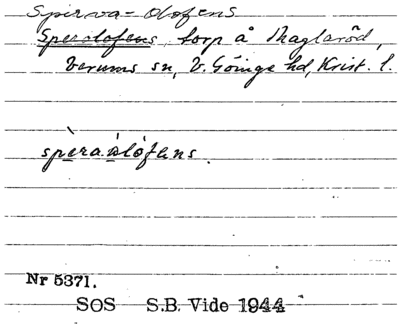 Spirva-Olofens
Sperolofens, torp å Maglaröd,
Verums sn, V. Göinge hd, Krist. l.
spèra.ólófens.
Nr 5371.
SOS S.B. Vide 1944